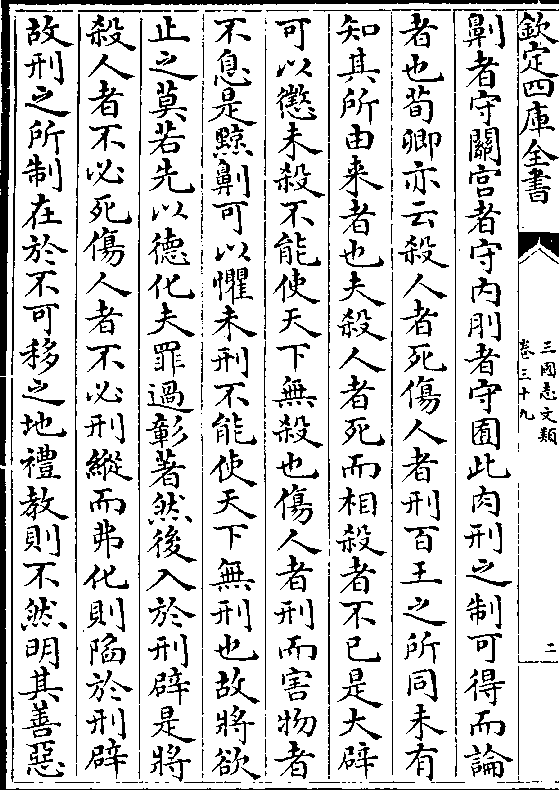 欽定四庫全書
三國志文類
卷三十九
二
劓者守關宮者守內刖者守囿此肉刑之制可得而論
者也荀卿亦云殺人者死傷人者刑百王之所同未有
知其所由来者也夫殺人者死而相殺者不已是大辟
可以懲未殺不能使天下無殺也傷人者刑而害物者
不息是黥劓可以懼未刑不能使天下無刑也故將欲
止之莫若先以德化夫罪過彰著然後入於刑辟是將
殺人者不必死傷人者不必刑縱而弗化則陷於刑辟
故刑之所制在於不可移之地禮教則不然明其善惡